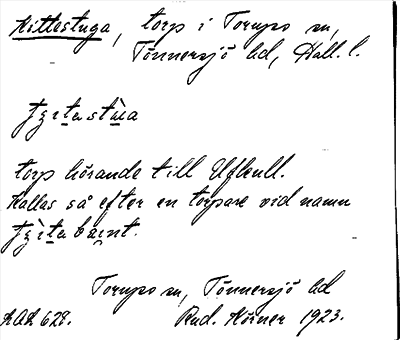 Kittestuga, torp i Torups sn,
Tönnersjö hd, Hall. l.
torp hörande till Ufkull.
Kallas så efter en torpare vid namn
Torups sn, Tönnersjö hd
KAK 628. Rud. Körner 1923.